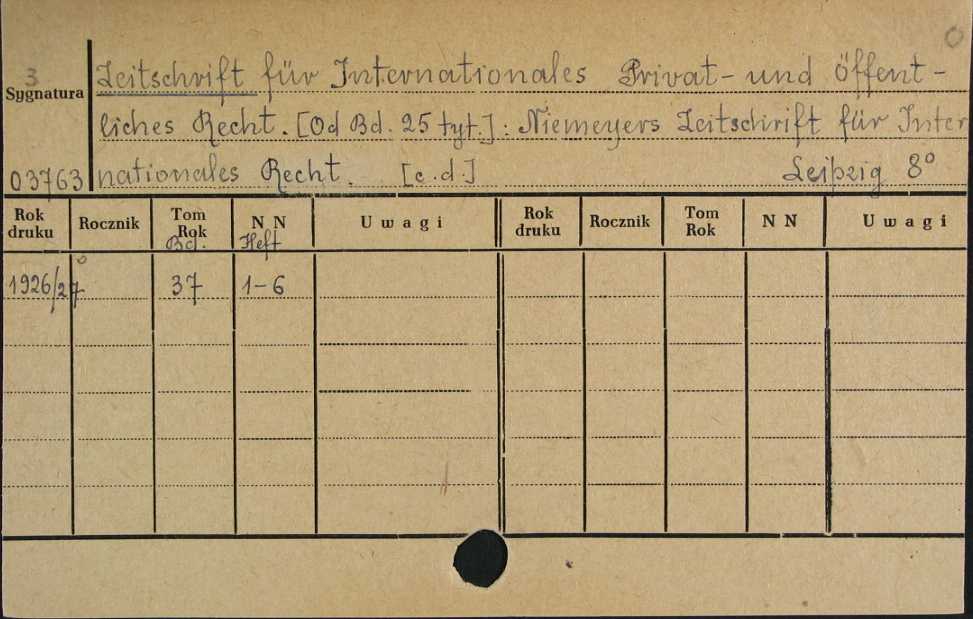 3
Zeitschrift für Internationales Privat- und öffent-
Sygnatura
liches Recht. [Od Bd. 25 tyt.]: Niemeyers Zeitschrift für Inter
03763 nationales Recht. [c.d.] Leipzig 8°
Rok druku Rocznik Tom Rok N N Uwagi Rok druku Rocznik Tom Rok N N Uwagi
Bd. Heft
1926/27 37 1-6